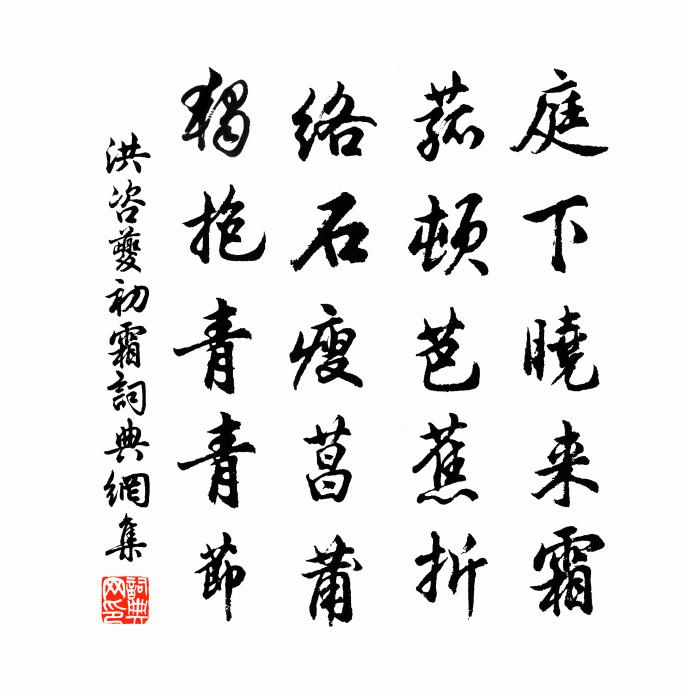 庭下曉来霜
菰頓芭蕉折
絡石瘦菖蒲
獨抱青青節
洪咨夔初霜詞典網集
詞典网印